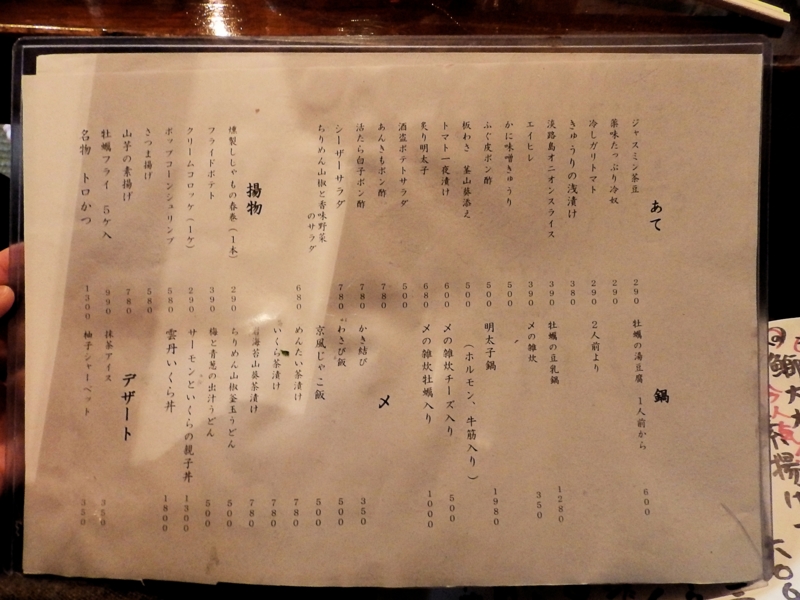 あて
ジャスミン茶豆 290
薬味たっぷり冷奴 290
冷しガリトマト 290
きゅうりの浅漬け 380
淡路島オニオンスライス 390
エイヒレ 390
かに味噌きゅうり 500
ふぐ皮ポン酢 500
板わさ 茎山葵添え 500
トマト一夜漬け 600
炙り明太子 680
酒盗ポテトサラダ 500
あんきもポン酢 780
たら白子ポン酢 780
シーザーサラダ 780
ちりめん山椒と香味野菜
のサラダ 680
揚物
燻製ししゃもの春巻(1本) 290
フライドポテト 390
クリームコロッケ(1ケ) 290
ポップコーンシュリンプ 580
さつま揚げ 580
山芋の素揚げ 780
牡蠣フライ 5ケ入 990
名物 トロかつ 1300
鍋
牡蠣の湯豆腐 1人前から 600
2人前より
牡蠣の豆乳鍋 1280
〆の雑炊 350
明太子鍋 1980
(ホルモン、牛筋入り)
〆の雑炊チーズ入り 500
〆の雑炊牡蠣入り 1000
〆
かき結び 350
わさび飯 500
京風じゃこ飯 500
めんたい茶漬け 780
いくら茶漬け 780
海苔山葵茶漬け 780
ちりめん山椒釜玉うどん 500
梅と青葱の出汁うどん 500
サーモンといくらの親子丼 1300
雲丹いくら丼 1800
デザート
抹茶アイス 350
柚子シャーベット 350